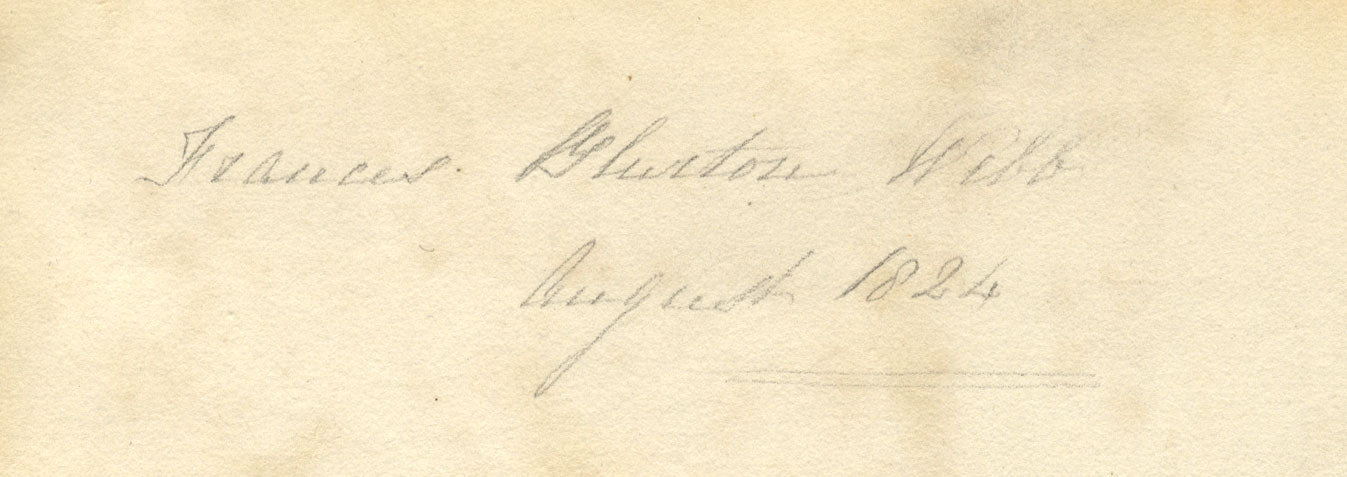 Frances Webb
August 1824